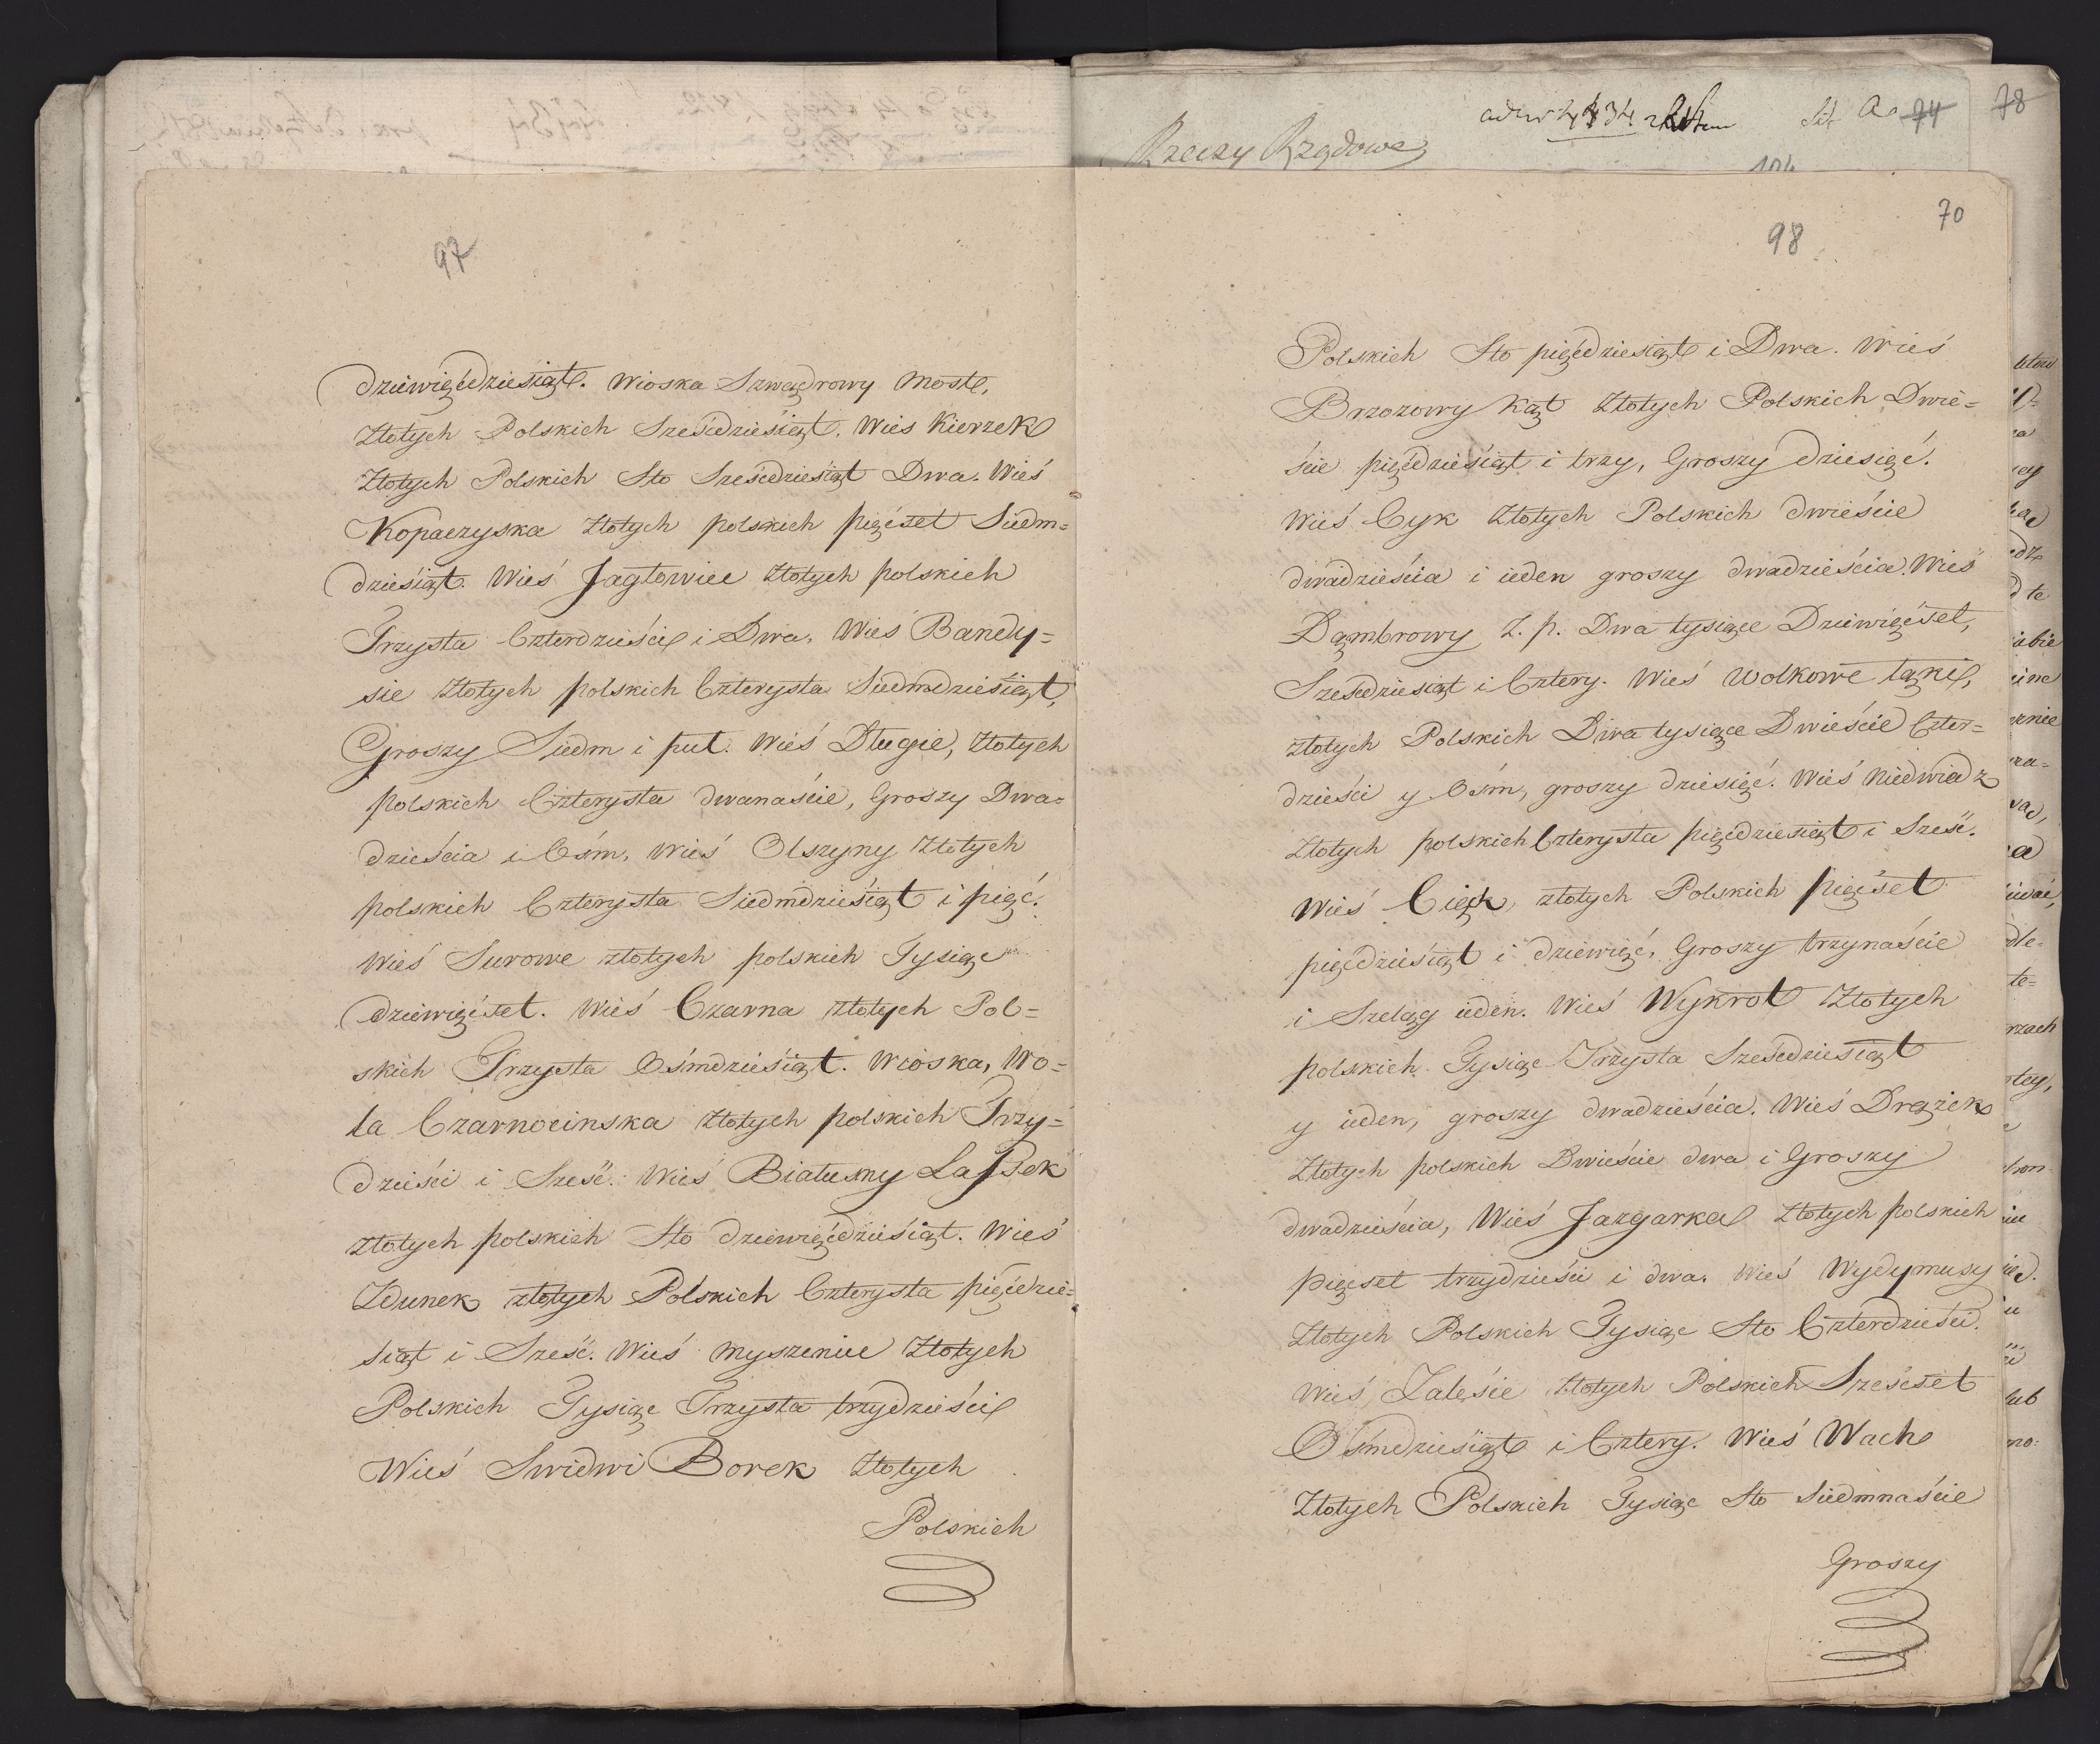 97
dziewięćdziesiąt. Wioska Szwądrowy Most,
Złotych Polskich Sześćdziesiąt. Wieś Kierzek
Złotych Polskich Sto Sześćdziesiąt Dwa. Wieś
Kopaczyska Złotych polskich pięćset Siedm=
dziesiąt. Wieś Jagłowiec Złotych polskich
Trzysta Czterdzieście i Dwa. Wieś Bandy=
sie Złotych polskich Czterysta Siedmdziesiąt,
Groszy Siedm i puł. Wieś Długie, Złotych
polskich Czterysta dwanaście, Groszy Dwa=
dzieścia i Ośm, Wieś Olszyny Złotych
polskich Czterysta Siedmdziesiąt i pięć.
Wieś Surowe złotych polskich Tysiąc
dziewięćset. Wieś Czarna złotych Pol=
skich Trzysta Ośmdziesiąt. Wioska, Wo=
la Czarnocinska złotych polskich Trzy=
dzieści i Sześć. Wieś Białusny Lassek
złotych polskich Sto dziewięćdziesiąt. Wieś
Zdunek złotych Polskich Czterysta pięćdzie=
siąt i Sześć. Wieś Myszeniec Złotych
Polskich Tysiąc Trzysta trzydzieście
Wieś Swidwi Borek Złotych
Polskich
Rzeczy Rządowe
Lit A
74
78
70
98
Polskich Sto pięćdziesiąt i Dwa. Wieś
Brzozowy Kąt Złotych Polskich Dwie=
ście pięćdziesiąt i trzy, Groszy dziesięć.
Wieś Cyk Złotych Polskich dwieście
dwadzieścia i ieden groszy dwadzieścia. Wieś
Dąmbrowy Z. p. Dwa tysiące Dziewięćset,
Sześćdziesiąt i Cztery. Wieś Wolkowe łąkie,
złotych Polskich Dwa tysiące Dwieście Czter=
dzieści y Ośm, groszy dziesięć. Wieś Niedwiadz
Złotych polskich Czterysta pięćdziesiąt i Sześć.
Wieś Cięk, złotych Polskich pięćset
pięćdziesiąt i dziewięć, Groszy trzynaście
i Szeląg ieden. Wieś Wykrot Złotych
polskich Tysiąc Trzysta Sześćdziesiąt
y ieden, groszy dwadzieścia. Wieś Drążek
Złotych polskich Dwieście dwa i Groszy
dwadzieścia, Wieś Jazgarka Złotych polskich
pięćset trzydzieści i dwa. Wieś Wydymusy
Złotych Polskich Tysiąc Sto Czterdzieści.
Wieś Zaleśie Złotych Polskich Sześćset
Ośmdziesiąt i Cztery. Wieś Wach
Złotych Polskich Tysiąc Sto Siedmnaście
Groszy